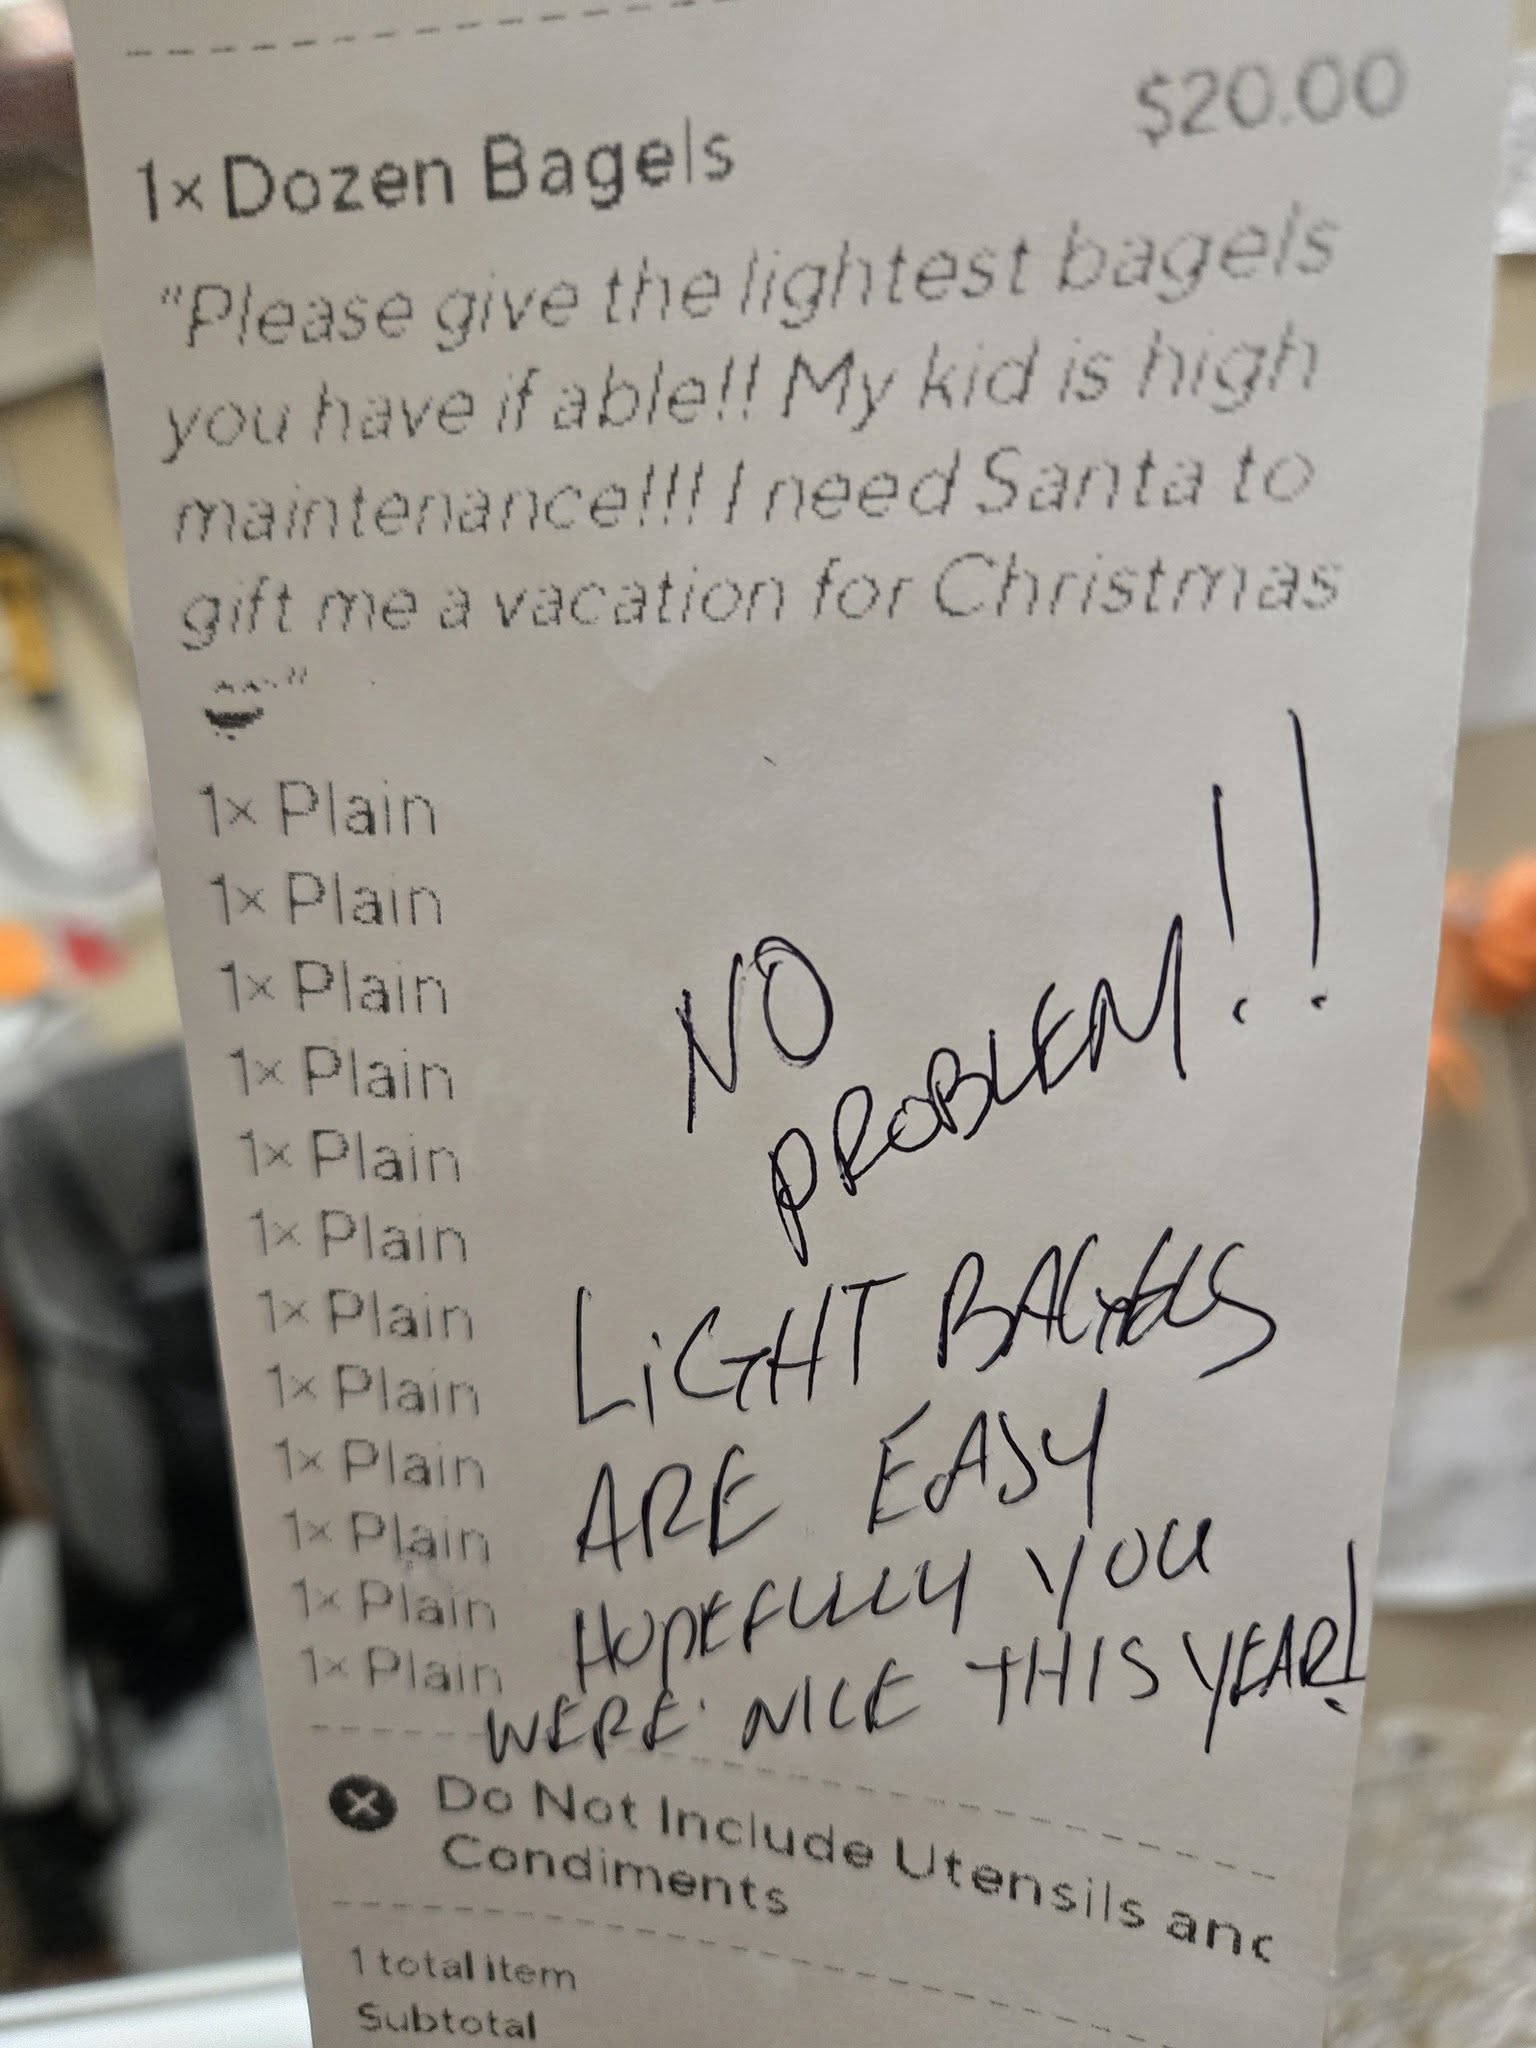 $20.00
1x Dozen Bagels
"Please give the lightest bagels
you have if able!! My kid is high
maintenance!!! I need Santa to
gift me a vacation for Christmas
😂"
1x Plain
1x Plain
1x Plain
1x Plain
1x Plain
1x Plain
1x Plain
1x Plain
1x Plain
1x Plain
1x Plain
1x Plain
NO
PROBLEM!!
LiGHT BAGELS
ARE EASY
HOPEFULLY YOU
WERE NICE THIS YEAR!
Do Not Include Utensils and
Condiments
1 total item
Subtotal